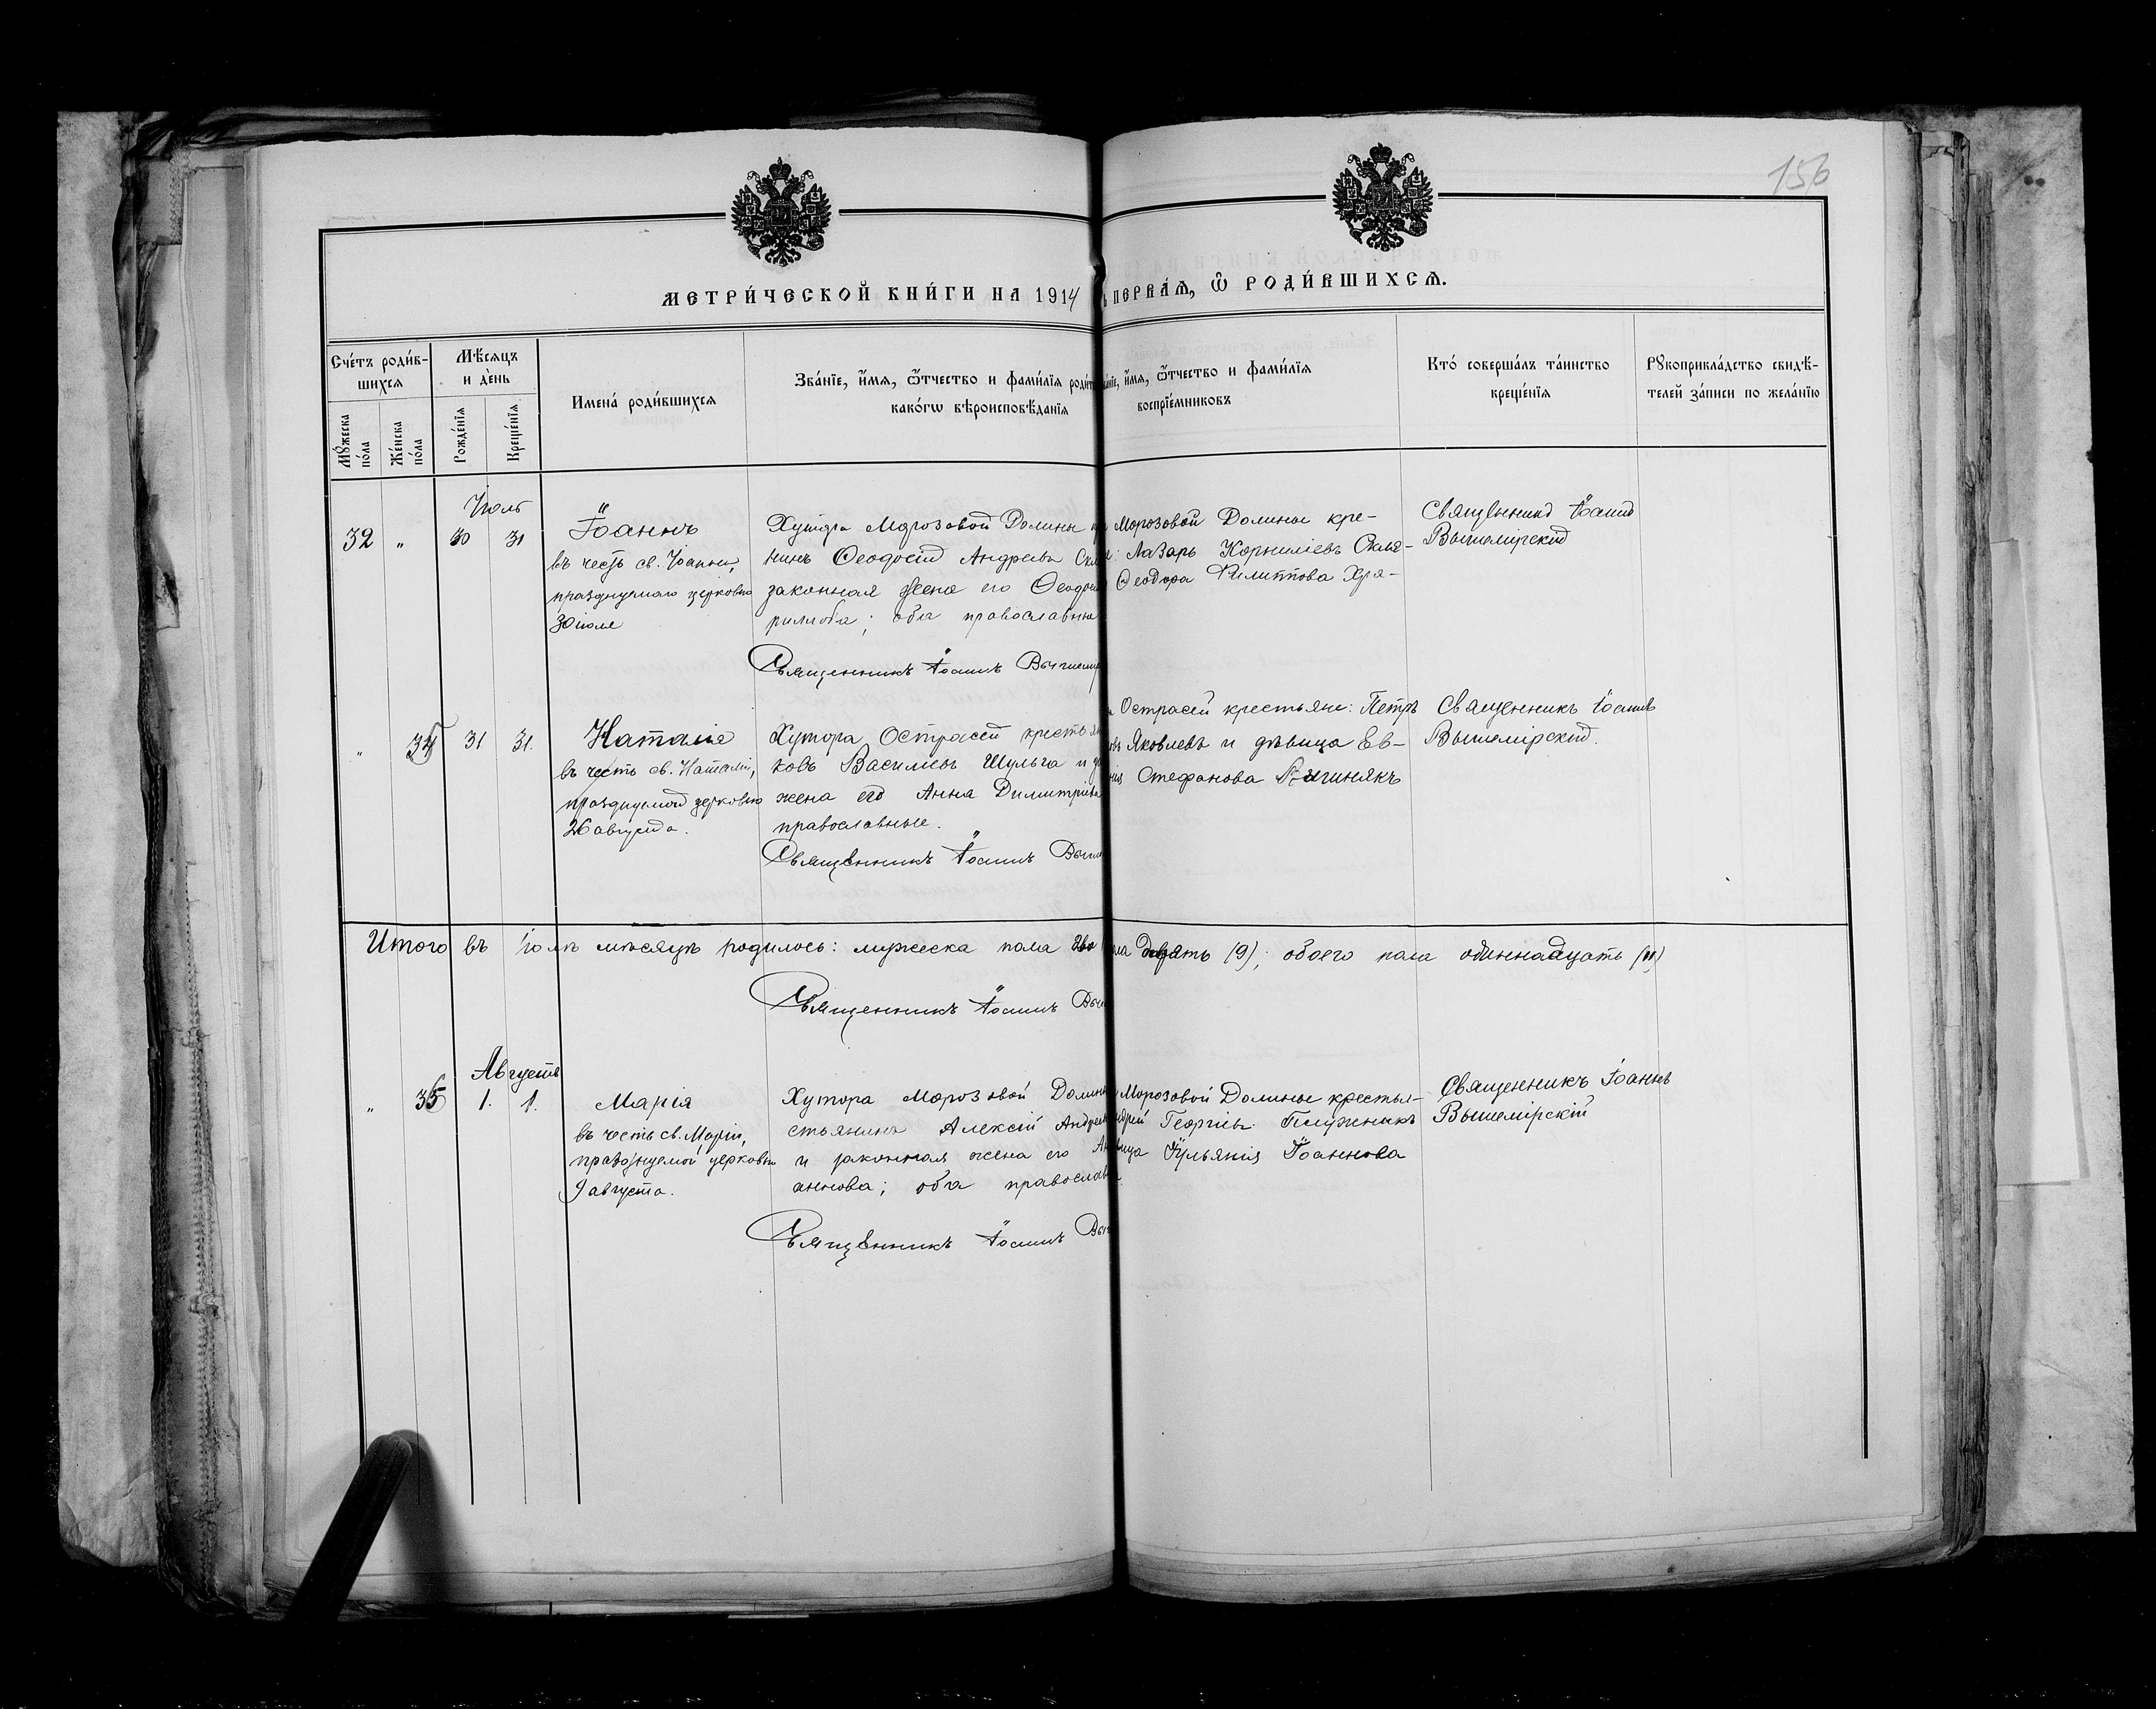 156
МЕТРИ́ЧЕСКОЙ КНИ́ГИ НА 1914
ПЕРВАѦ, Ѿ РОДИ́ВШИХСѦ.
Сче́тъ роди́в-
шихся
Мѣ́сяцъ
и де́нь
Мꙋ́жеска
по́ла
Же́нска
по́ла
Рожде́нїя
Креще́нїя
Имена́ роди́вшихся
Зва́нїе, и҆́мя, ѻ҆́тчество и фами́лїя роди́т
како́гѡ вѣроисповѣ́данїя
и҆́мя, ѻ҆́тчество и фами́лїя
воспрїе́мниковъ
Кто́ соверша́лъ та́инство
креще́нїя
Рꙋкоприкла́дство свидѣ́-
телей за́писи по жела́нїю
Іюль
32 " 30 31
Іоаннъ
въ честь св. Іоанна,
празднуемаго церковью
30 іюля
Хутора Морозовой Долины
нинъ Ѳеодосій Андреевъ
законная жена его
риллова; оба православные
Священникъ Іоаннъ
Морозовой Долины кре-
Лазарь Корниліевъ
Ѳеодора Филиппова Хри-
Священникъ Іоаннъ
Вышемірскій
" 34 31 31.
Наталія
въ честь св. Наталіи,
празднуемой церковью
26 августа.
Хутора Острасей крестьян
ковъ Василіевъ Шульга и
жена его Анна Димитріева
православные.
Священникъ Іоаннъ
Острасей крестьяне: Петръ
Яковлевъ и дѣвица Ев-
Стефанова
Священникъ Іоаннъ
Вышемірскій.
Итого въ Іюлѣ мѣсяцѣ родилось: мужеска пола два
девять (9); обоего пола одиннадцать (11)
Священникъ Іоаннъ
Августъ
" 35 1. 1.
Марія
въ честь св. Маріи,
празднуемой церковью
9 августа.
Хутора Морозовой Долины
стьянинъ Алексій Андреевъ
и законная жена его
аннова; оба православн
Священникъ Іоаннъ
Морозовой Долины крестья-
Георгіевъ
Іульянія Іоаннова
Священникъ Іоаннъ
Вышемірскій